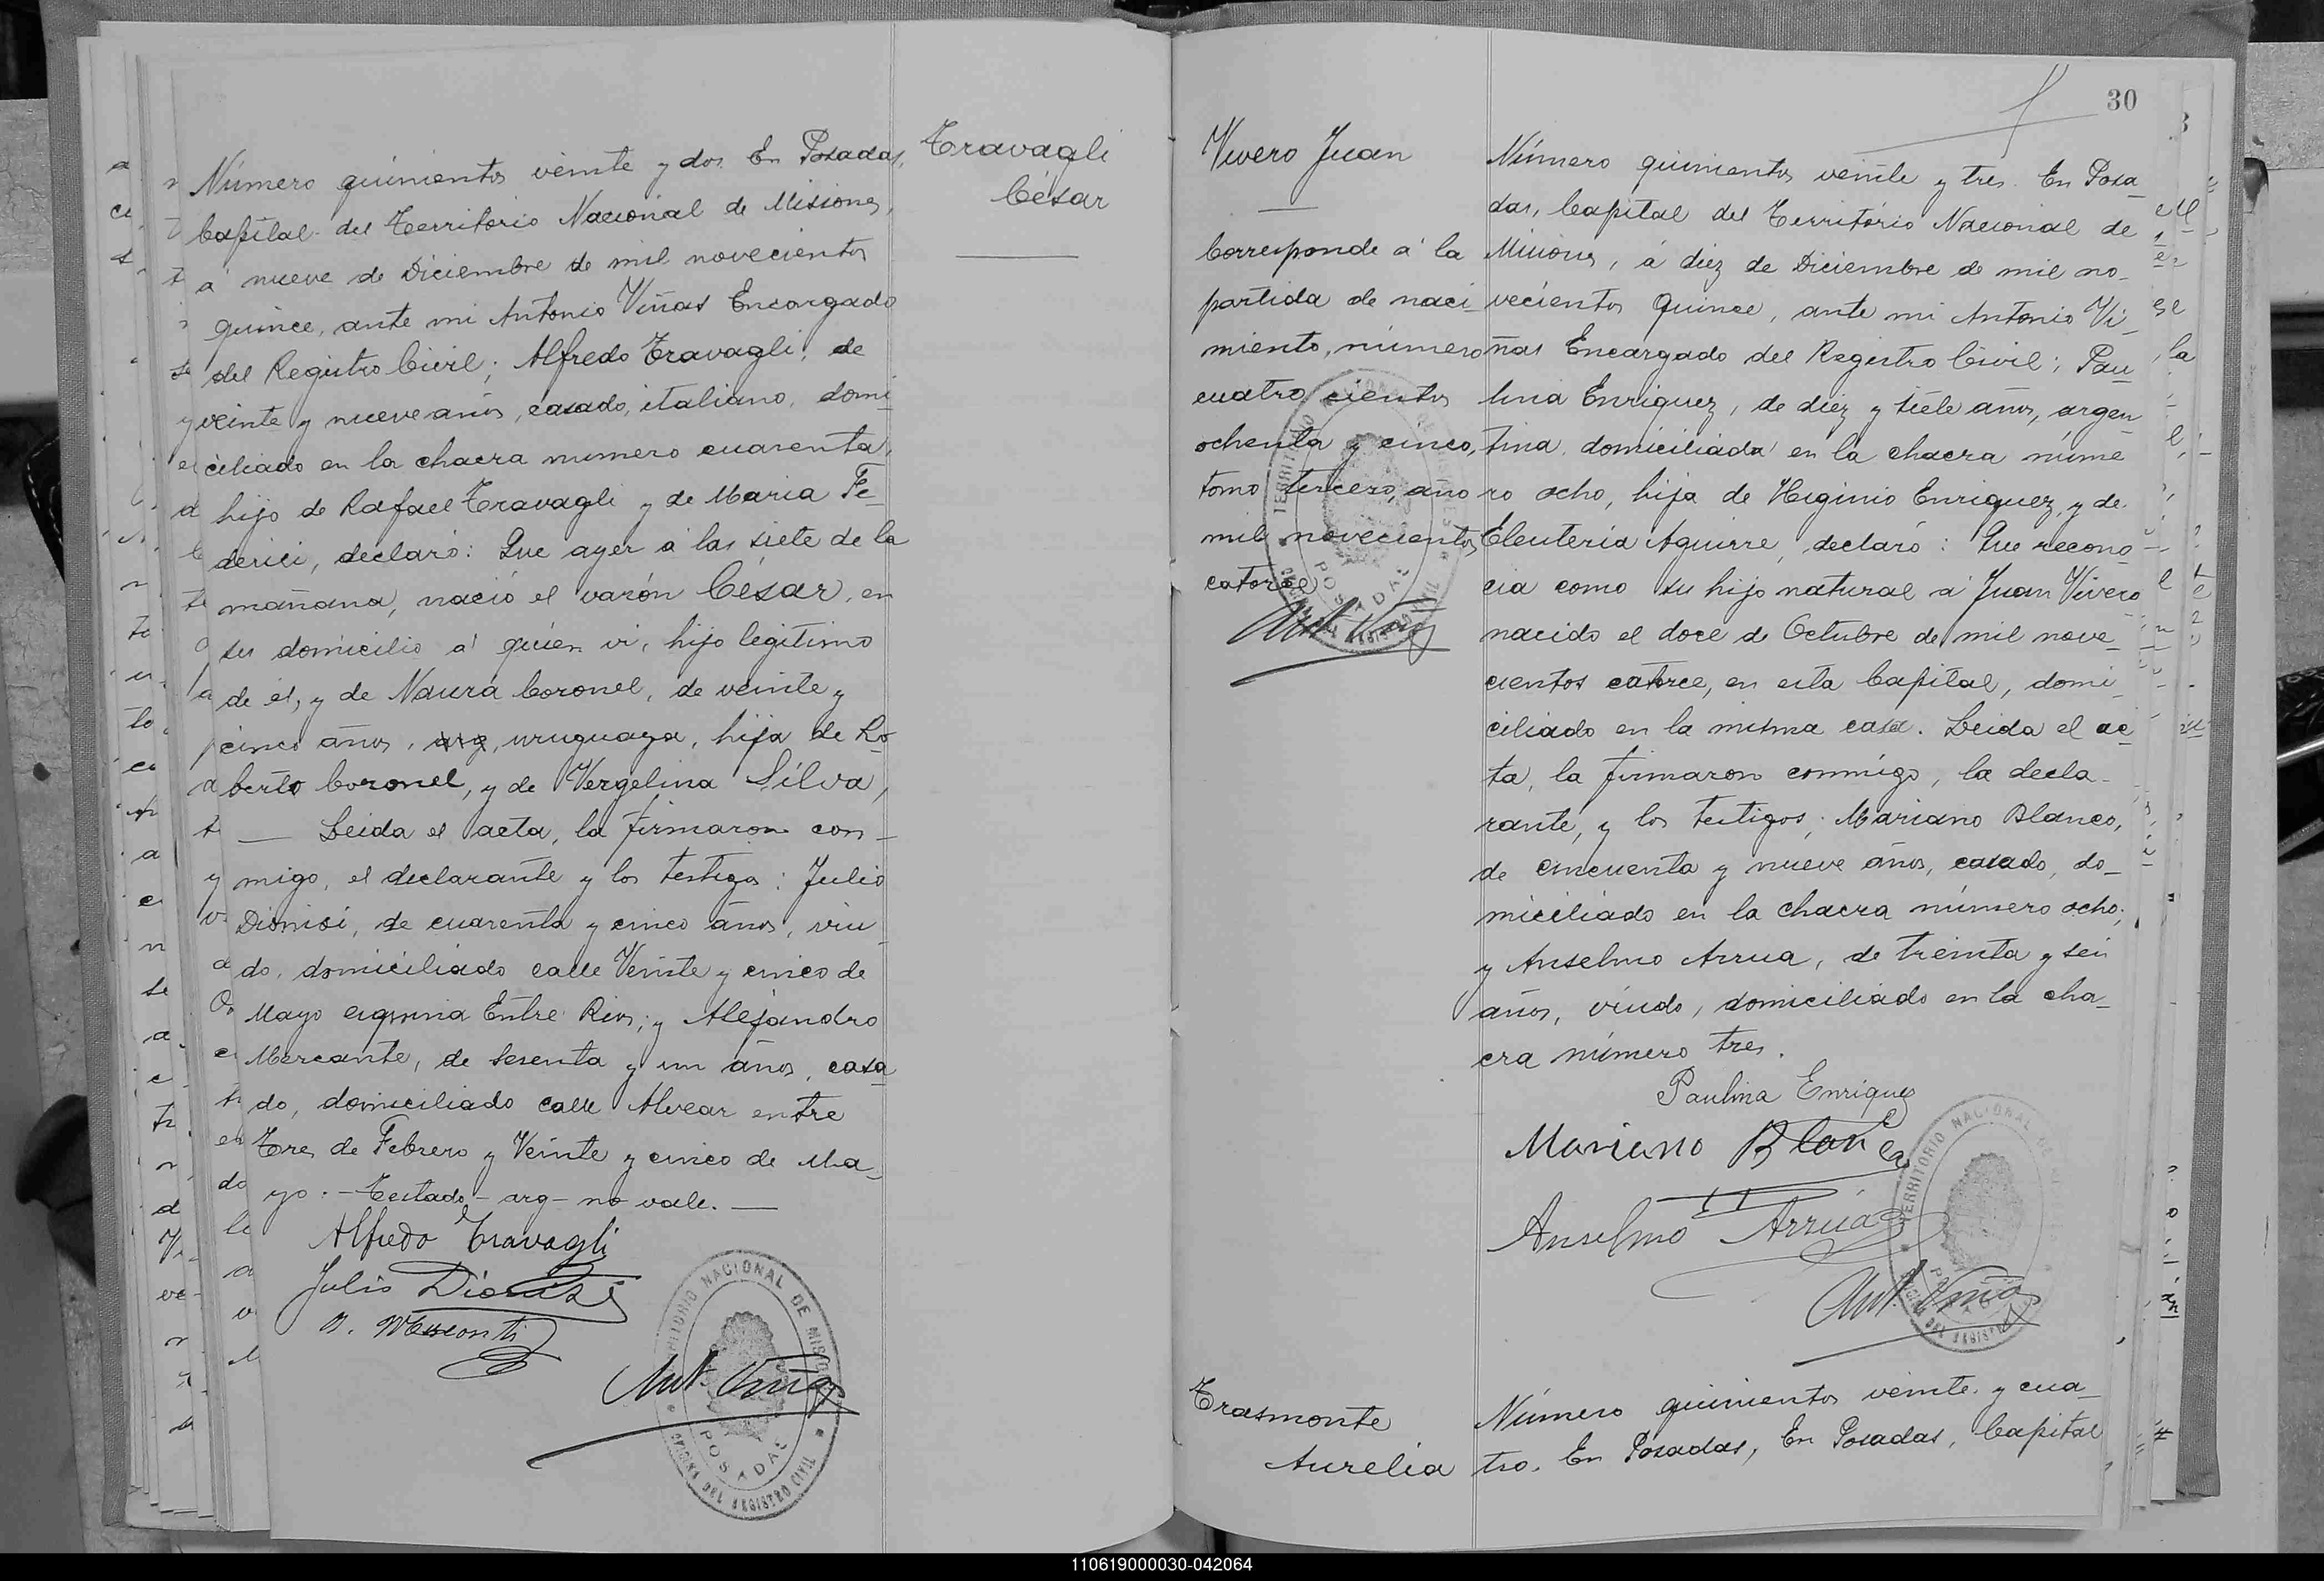 Travagli
César
Número quinientos veinte y dos. En Posadas,
Capital del Territorio Nacional de Misiones,
á nueve de Diciembre de mil novecientos
quince, ante mi Antonio Viñas Encargado
del Registro Civil; Alfredo Travagli, de
veinte y nueve años, casado, italiano, domi-
ciliado en la chacra numero cuarenta,
hijo de Rafael Travagli y de Maria Fe-
derici, declaró: Que ayer á las siete de la
mañana, nació el varón César, en
su domicilio á quien vi, hijo legitimo
de él, y de Naura Coronel, de veinte y
cinco años, arg, uruguaya, hija de Ro-
berto Coronel, y de Vergelina Silva,
— Leida el acta, la firmaron con-
migo, el declarante y los testigos: Julio
Dionisi, de cuarenta y cinco años, viu-
do, domiciliado calle Veinte y cinco de
Mayo esquina Entre Rios; y Alejandro
Mercante, de sesenta y un años, casa-
do, domiciliado calle Alvear entre
Tres de Febrero y Veinte y cinco de Ma-
yo. — Testado — arg — no vale. —
Alfredo Travagli
Julio Dionisi
Ant. Viñas
TERRITORIO NACIONAL DE MISIONES
POSADAS
OFICINA DEL REGISTRO CIVIL
30
Vivero Juan
Corresponde á la
partida de naci-
miento, número
cuatro cientos
ochenta y cinco,
tomo tercero, año
mil novecientos
catorce
Ant. Viñas
TERRITORIO NACIONAL DE MISIONES
POSADAS
OFICINA DEL REGISTRO CIVIL
Número quinientos veinte y tres. En Posa-
das, Capital del Territorio Nacional de
Misiones, á diez de Diciembre de mil no-
vecientos quince, ante mi Antonio Vi-
ñas Encargado del Registro Civil; Pau-
lina Enriquez, de diez y siete años, argen-
tina, domiciliada en la chacra núme-
ro ocho, hija de Higinio Enriquez, y de
Eleuteria Aguirre, declaró: Que recono-
cia como su hijo natural á Juan Vivero
nacido el doce de Octubre de mil nove-
cientos catorce, en esta Capital, domi-
ciliado en la misma casa. Leida el ac-
ta, la firmaron conmigo, la decla-
rante, y los testigos; Mariano Blanco,
de cincuenta y nueve años, casado, do-
miciliado en la chacra número ocho;
y Anselmo Arrua, de treinta y seis
años, viudo, domiciliado en la cha-
cra número tres.
Paulina Enriquez
Mariano Blanco
Anselmo Arrúa
Ant. Viñas
TERRITORIO NACIONAL DE
POSADAS
OFICINA DEL REGISTRO
Trasmonte
Aurelia
Número quinientos veinte y cua-
tro. En Posadas, En Posadas, Capital
110619000030-042064